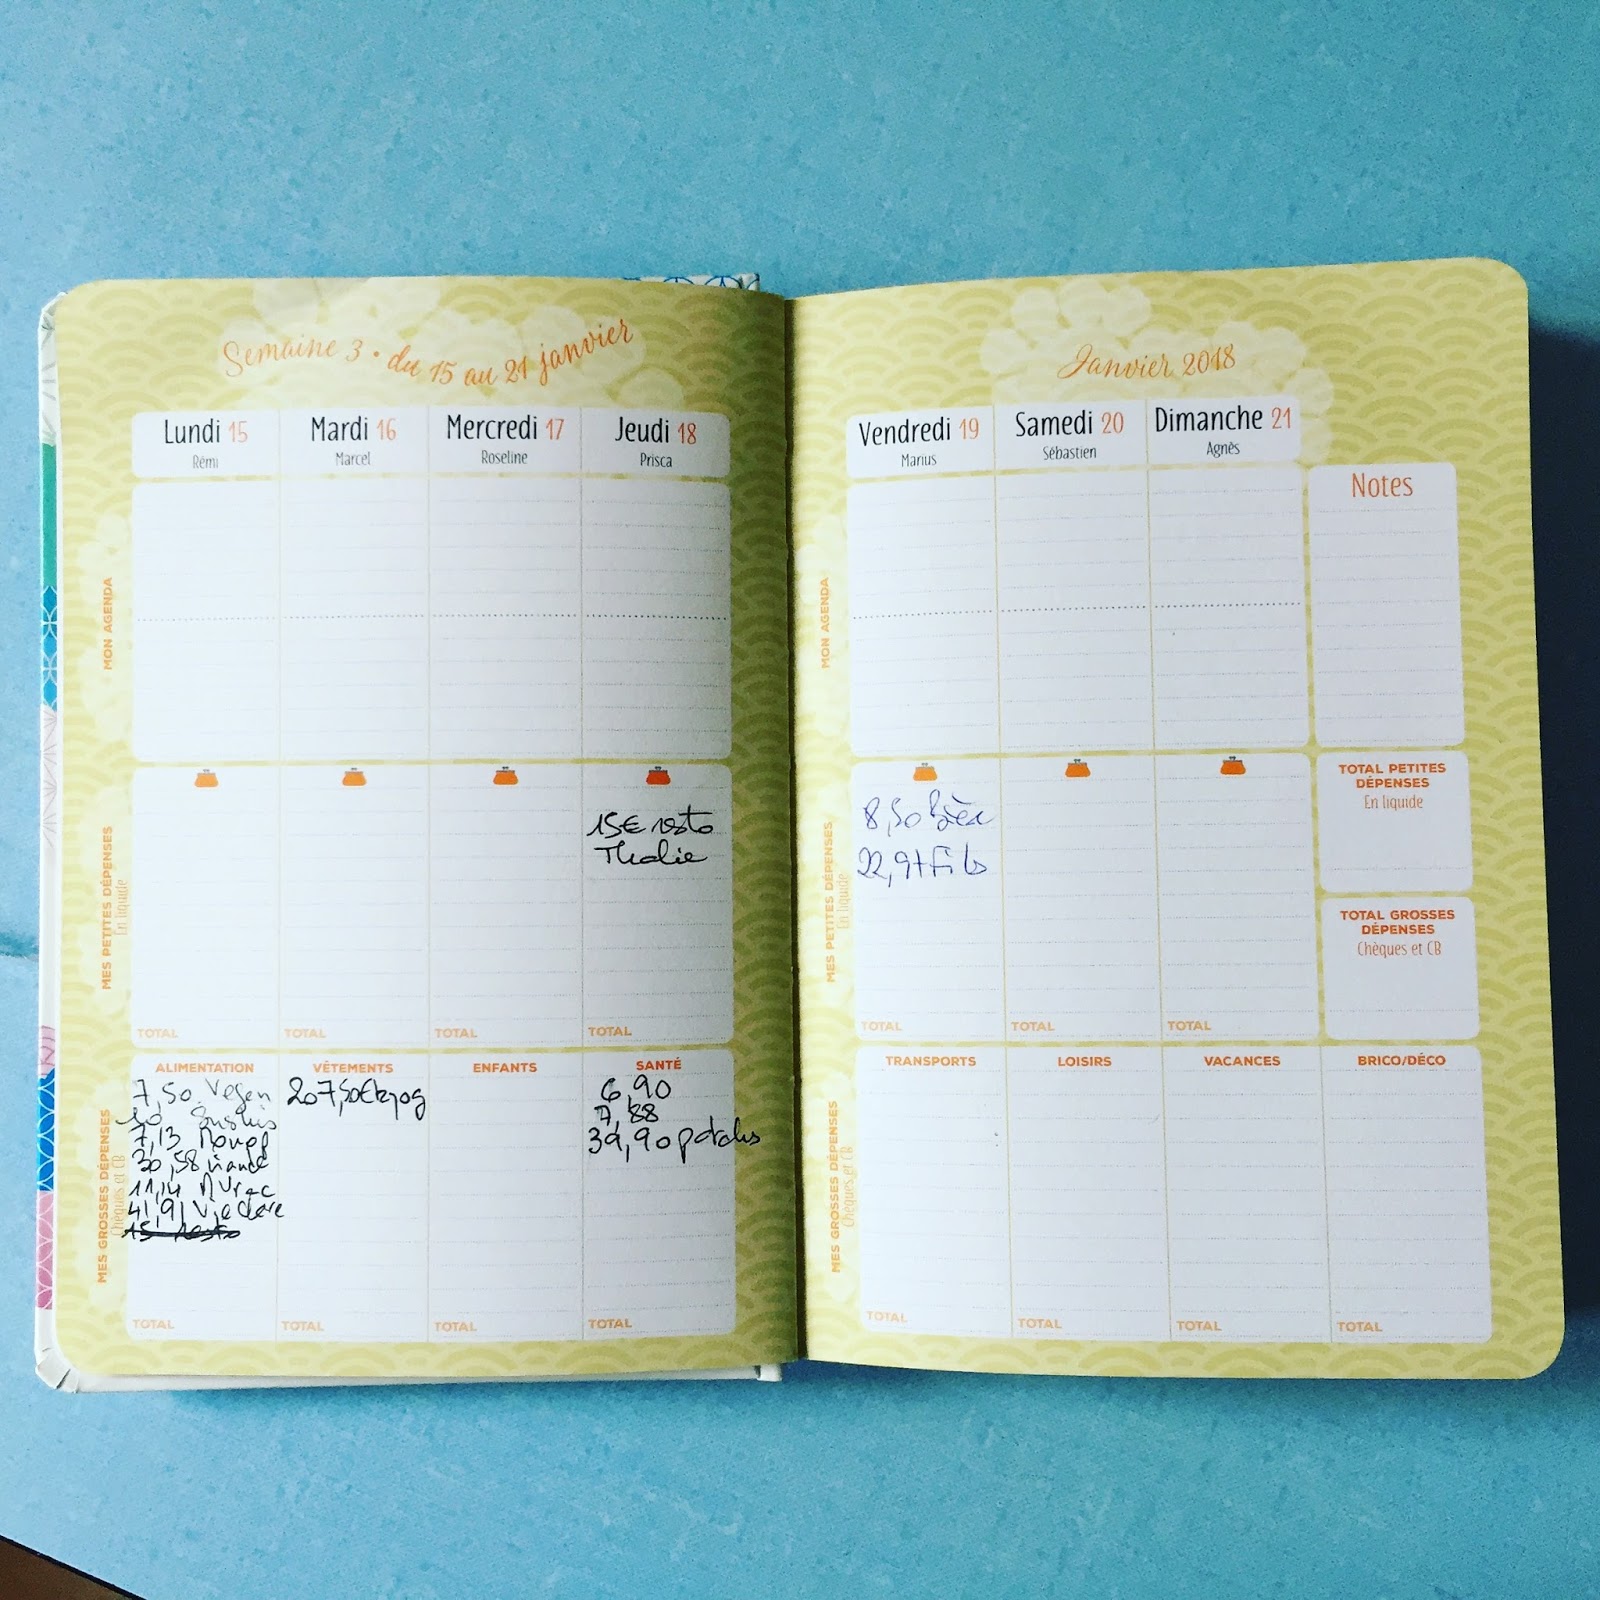 Semaine 3 • du 15 au 21 janvier
Lundi 15
Rémi
Mardi 16
Marcel
Mercredi 17
Roseline
Jeudi 18
Prisca
MON AGENDA
MES PETITES DÉPENSES
En liquide
15€ resto
Thalie
TOTAL
TOTAL
TOTAL
TOTAL
MES GROSSES DÉPENSES
Chèques et CB
ALIMENTATION
7,50 Vegan
30 Sushis
7,13 Monop
30,58 viande
11,14
41,91
15 resto
TOTAL
VÊTEMENTS
TOTAL
ENFANTS
TOTAL
SANTÉ
6,90
7,88
39,90
TOTAL
Janvier 2018
Vendredi 19
Marius
Samedi 20
Sébastien
Dimanche 21
Agnès
Notes
MON AGENDA
MES PETITES DÉPENSES
En liquide
8,50
22,97
TOTAL
TOTAL
TOTAL
TOTAL PETITES
DÉPENSES
En liquide
TOTAL GROSSES
DÉPENSES
Chèques et CB
MES GROSSES DÉPENSES
Chèques et CB
TRANSPORTS
TOTAL
LOISIRS
TOTAL
VACANCES
TOTAL
BRICO/DÉCO
TOTAL